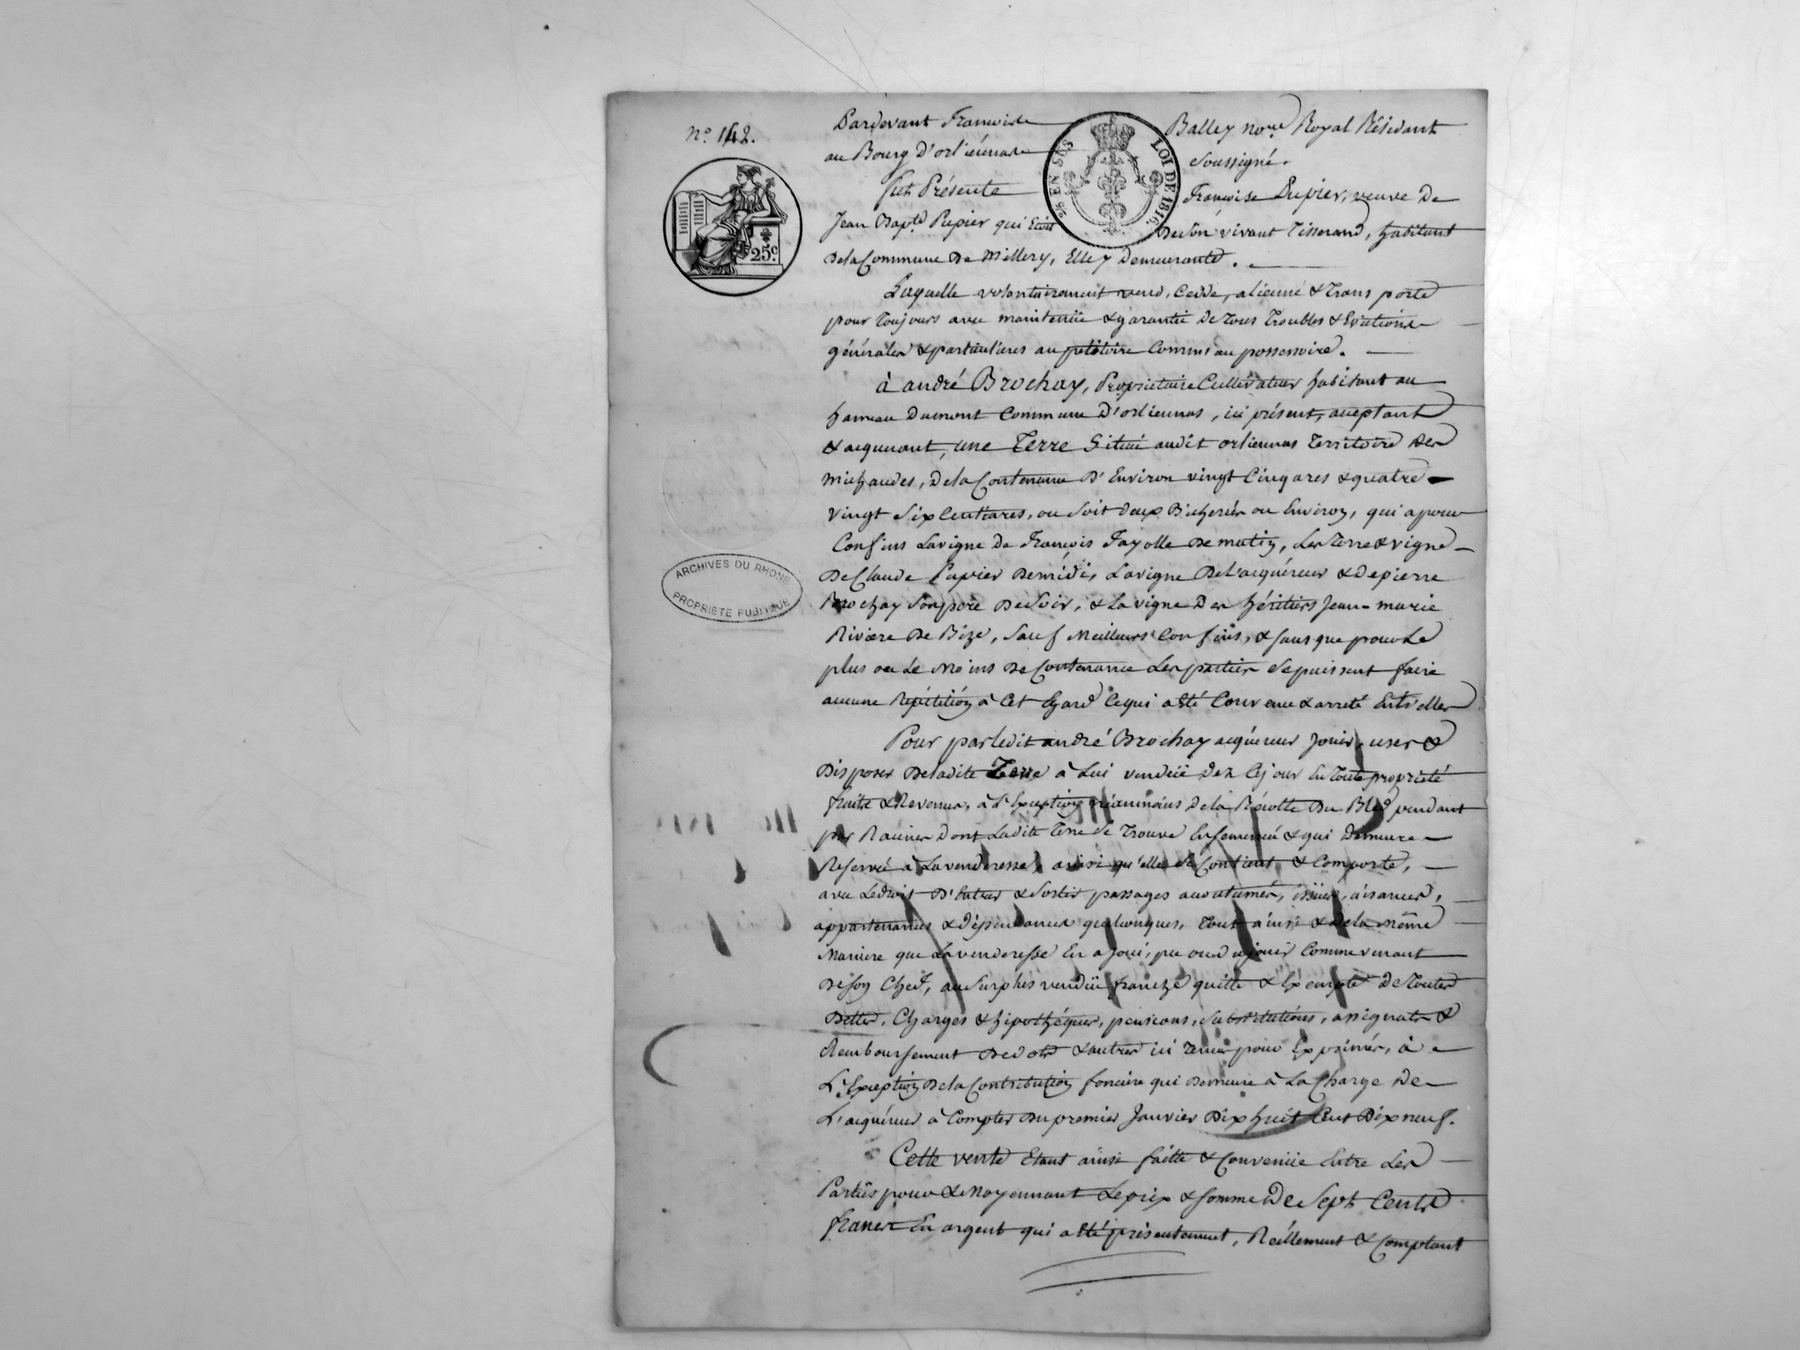 n.o 142.
25c.
2/5 EN SUS
LOI DE 1816.
ARCHIVES DU RHONE
PROPRIETE PUBLIQUE
Pardevant Francois Balley no.re Royal Résidant
au Bourg d'orliénnas soussigné.
fut Présente Françoise Pupier, veuve De
Jean Bapt.e Pupier qui Etoit De son vivant Tisserand, habitant
De la Commune De Millery, Elle y Demeurante.
Laquelle volontairement vend, Cedde, alienne & Transporte
pour Toujours avec maintenüe & garantie De Tous Troubles & Evictions
générales & particulieres au petitoire Comme au possessoire.
à andré Brochay, Propriétaire Cultivateur habitant au
hameau Dumont Commune D'orliennas, ici présent, acceptant
& acquerant, une Terre Située audit orliennas Territoire Des
Michaudes, De la Contenance D'Environ vingt Cinq ares & quatre
vingt Six Centiares, ou Soit Deux Bicherées ou Environ, qui a pour
Confins La vigne De François Fayolle De matin, Les Terre & vigne
De Claude Pupier De midi, La vigne De L'acquéreur & De pierre
Brochay Son pere De Soir, & La vigne Des héritiers Jean-marie
Riviere De Bize, Sauf Meilleurs Confins, & Sans que pour Le
plus ou Le Moins De Contenance Les parties Se puissent faire
aucune Répétition à Cet Egard Ce qui a Eté Convenu & arreté Entr'elles
Pour par Ledit andré Brochay acquéreur Jouir, user &
Disposer De Ladite Terre à Lui vendüe Dez Ce jour En Toute propriété
fruits & Revenus, à L'Exception néanmoins De la Récolte Du Bled pendant
par Racines Dont Ladite Terre Se Trouve Ensemencée & qui Demeure
Réservée à La venderesse, ainsi qu'elle Se Contient & Comporte,
avec Le droit D'Entrer & Sortir, passages accoutumés, issües, aisances,
appartenances & Dépendances quelconques, Tout ainsi & De la même
Maniere que La venderesse En a Joui, pu ou du jouir Comme venant
De son Chef, au Surplus vendüe franche quitte & Exempte De Toutes
Dettes, Charges & hipothéques, pensions, Substitutions, assignats &
Remboursement De dots & autres ici Tenus pour Exprimés, à
L'Exception De la Contribution fonciere qui Demeure à La Charge De
L'acquéreur à Compter Du premier Janvier Dix huit Cent Dix neuf.
Cette vente Etant ainsi faitte & Convenüe Entre Les
Parties pour & Moyennant Le prix & Somme De Sept Cents
francs En argent qui a Eté présentement, Réellement & Comptant